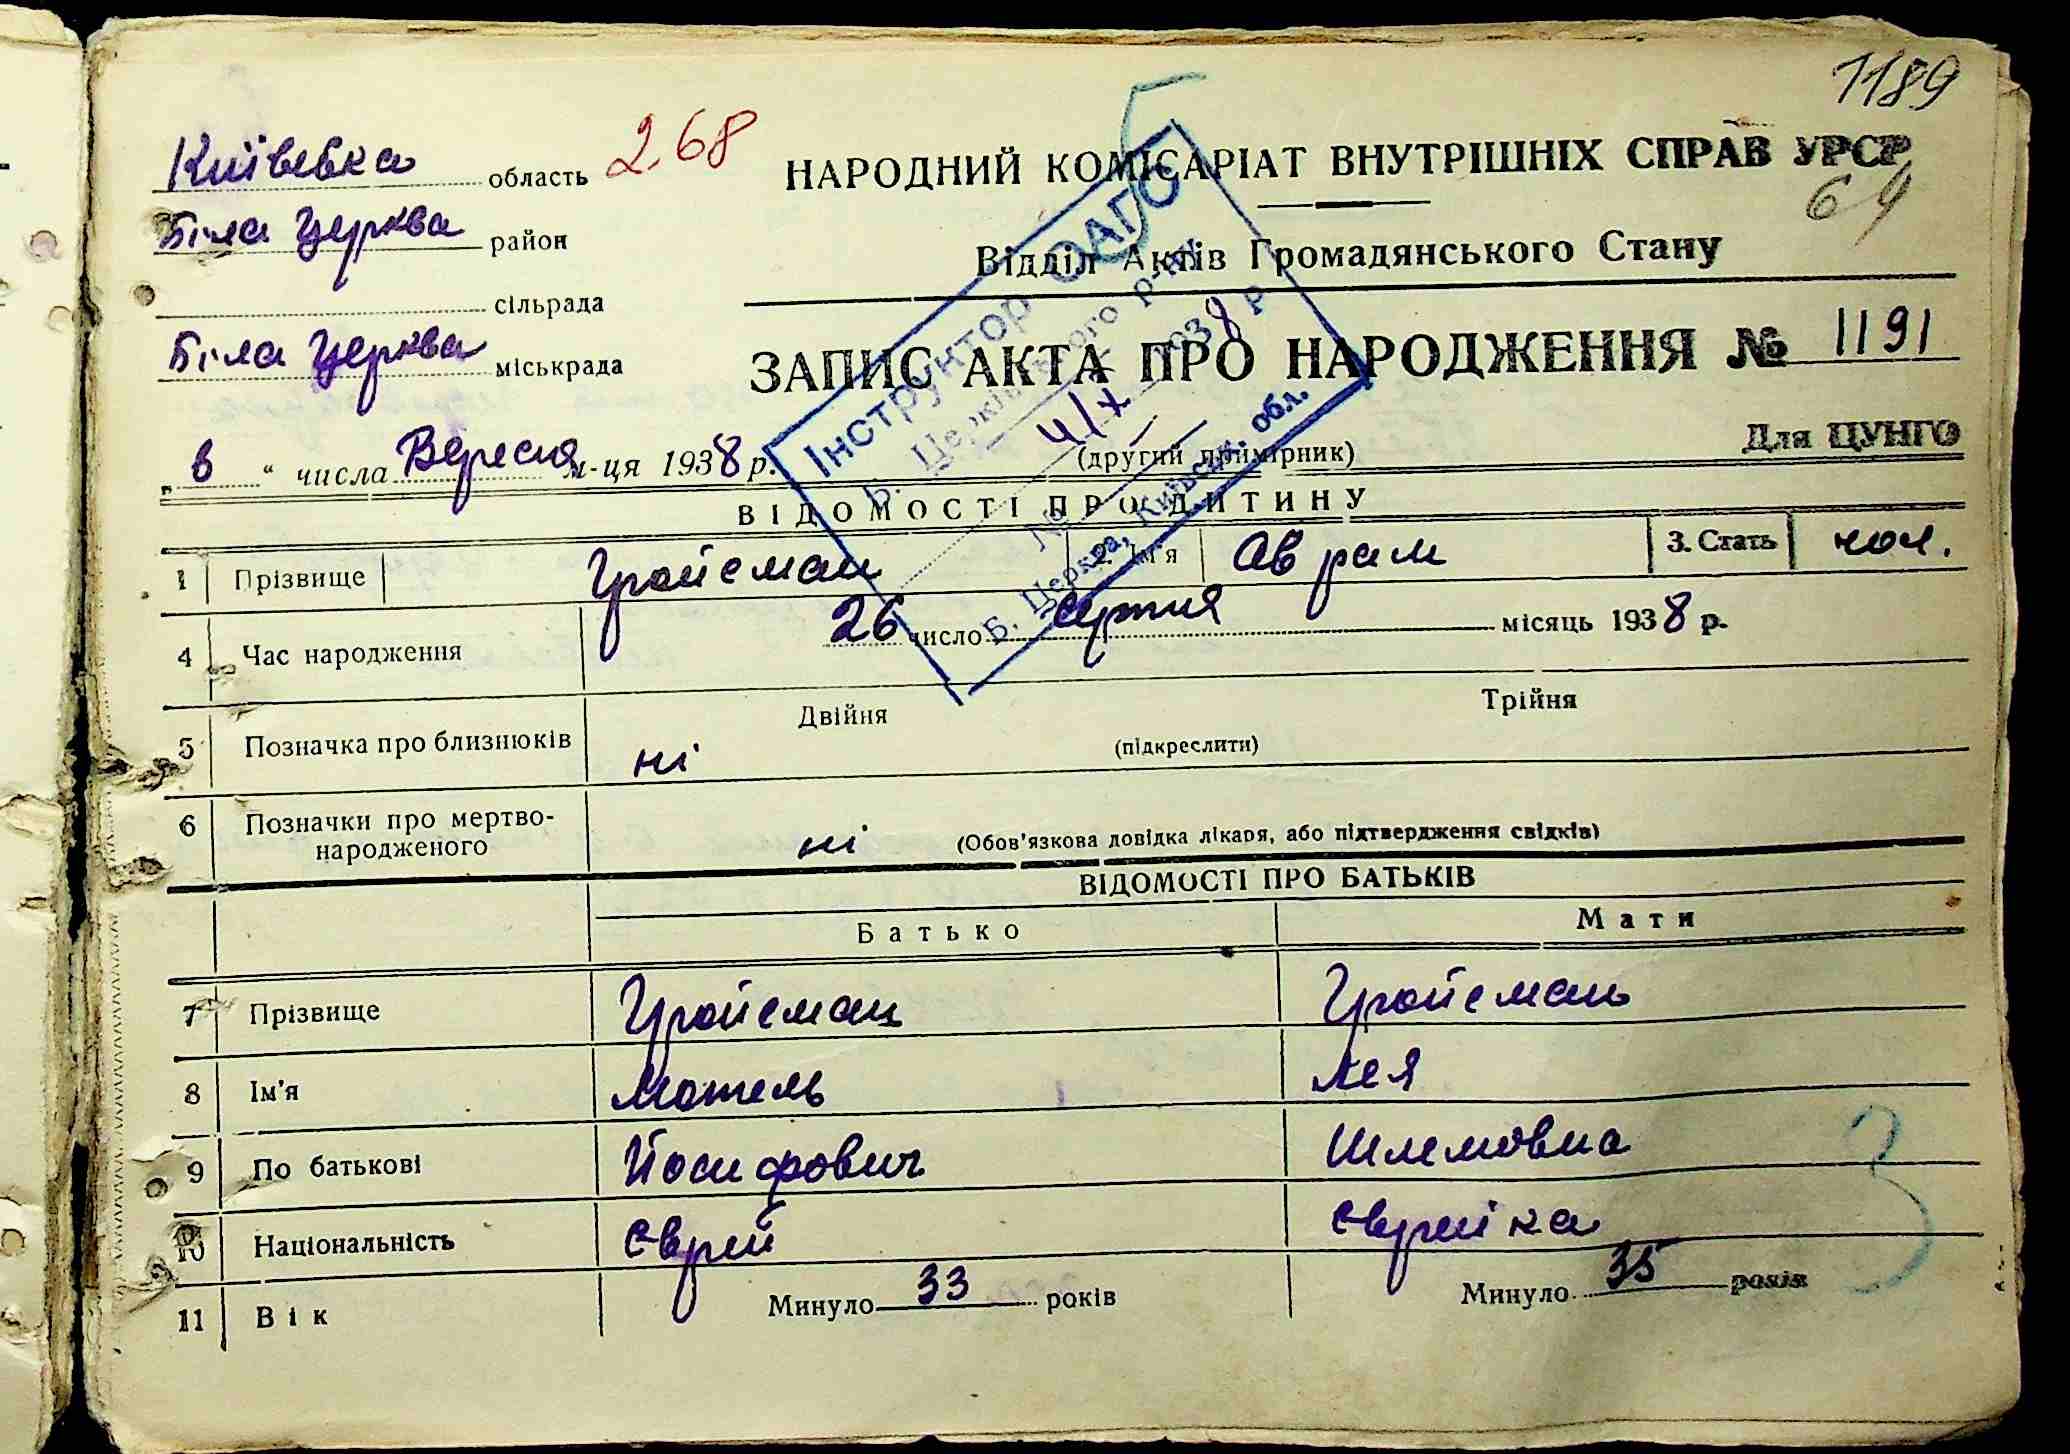 1189
Київська область 268
НАРОДНИЙ КОМІСАРІАТ ВНУТРІШНІХ СПРАВ УРСР
64
Біла Церква район
Відділ Актів Громадянського Стану
сільрада
Біла Церква міськрада
ЗАПИС АКТА ПРО НАРОДЖЕННЯ № 1191
Для ЦУНГО
„6“ числа Вересня м-ця 1938 р.
(другий примірник)
Інструктор ОАГС
Б. Церківського р-ну
4/X 1938 р
№
Б. Церква, Київськ. обл.
5
ВІДОМОСТІ ПРО ДИТИНУ
1 Прізвище Гройсман 2. Ім'я Аврам 3. Стать чол.
4 Час народження 26 число серпня місяць 1938 р.
5 Позначка про близнюків Двійня Трійня
ні (підкреслити)
6 Позначки про мертво-
народженого ні (Обов'язкова довідка лікаря, або підтвердження свідків)
ВІДОМОСТІ ПРО БАТЬКІВ
Батько Мати
7 Прізвище Гройсман Гройсман
8 Ім'я Мотель Лея
9 По батькові Йосифович Шлемовна
10 Національність Єврей Єврейка
11 Вік Минуло 33 років Минуло 35 років
3